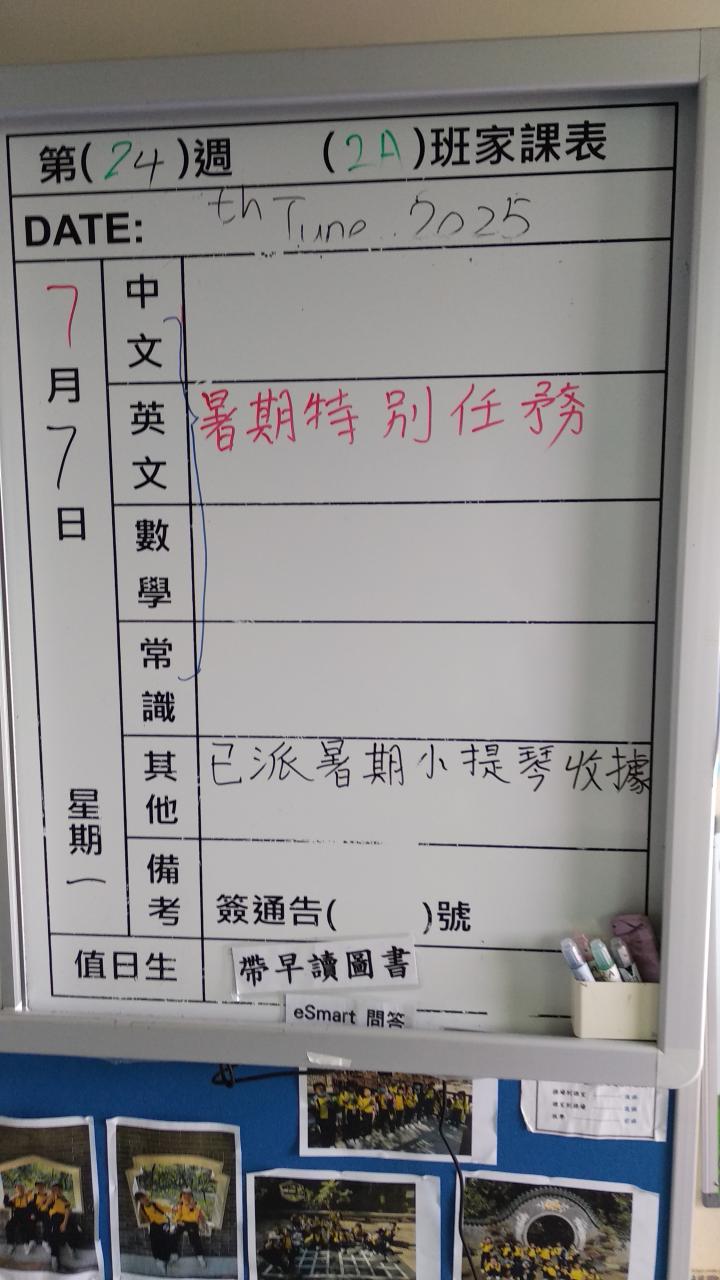 第(24)週 (2A)班家課表
DATE: th June 2025
7月7日
星期一
中文
英文 暑期特別任務
數學
常識
其他 已派暑期小提琴收據
備考 簽通告( )號
值日生 帶早讀圖書
eSmart 問答